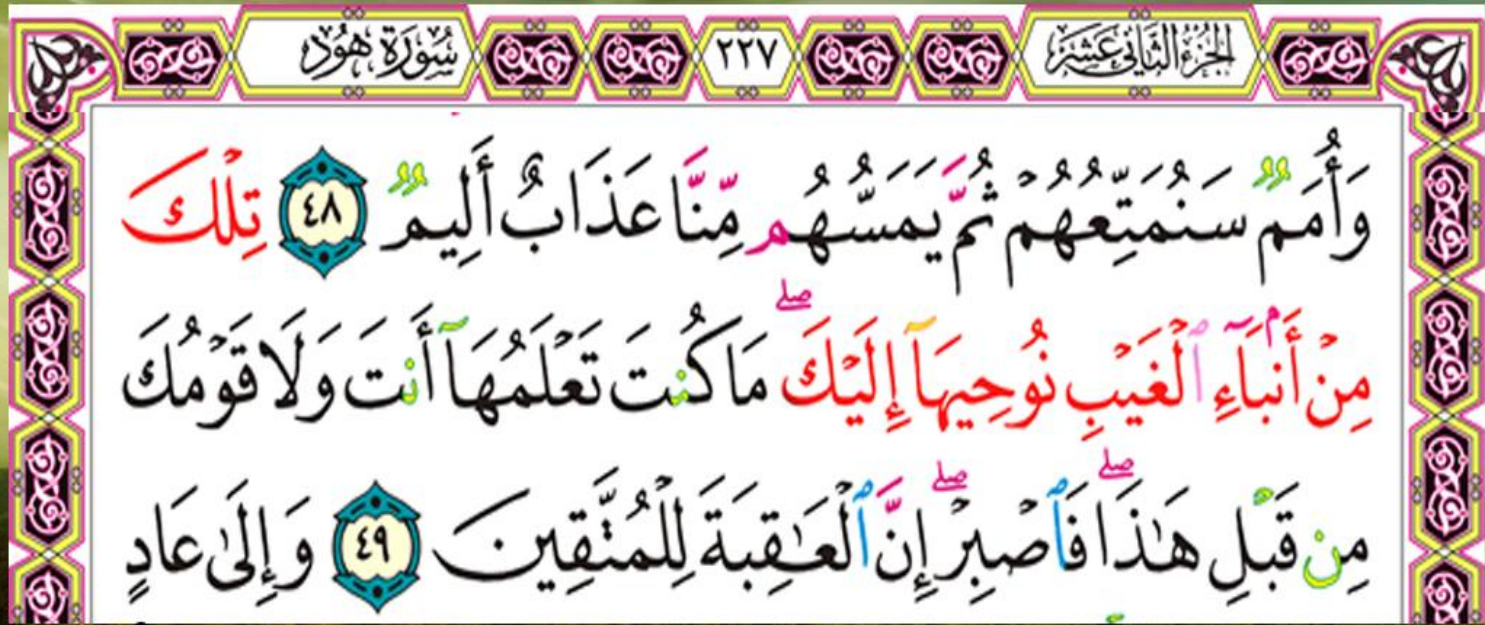 الجزء الثاني عشر ٢٢٧ سورة هود
وَأُمَمٌ سَنُمَتِّعُهُمْ ثُمَّ يَمَسُّهُم مِّنَّا عَذَابٌ أَلِيمٌ ٤٨ تِلْكَ
مِنْ أَنۢبَآءِ ٱلْغَيْبِ نُوحِيهَآ إِلَيْكَ ۖ مَا كُنتَ تَعْلَمُهَآ أَنتَ وَلَا قَوْمُكَ
مِن قَبْلِ هَـٰذَا ۖ فَٱصْبِرْ ۖ إِنَّ ٱلْعَـٰقِبَةَ لِلْمُتَّقِينَ ٤٩ وَإِلَىٰ عَادٍ